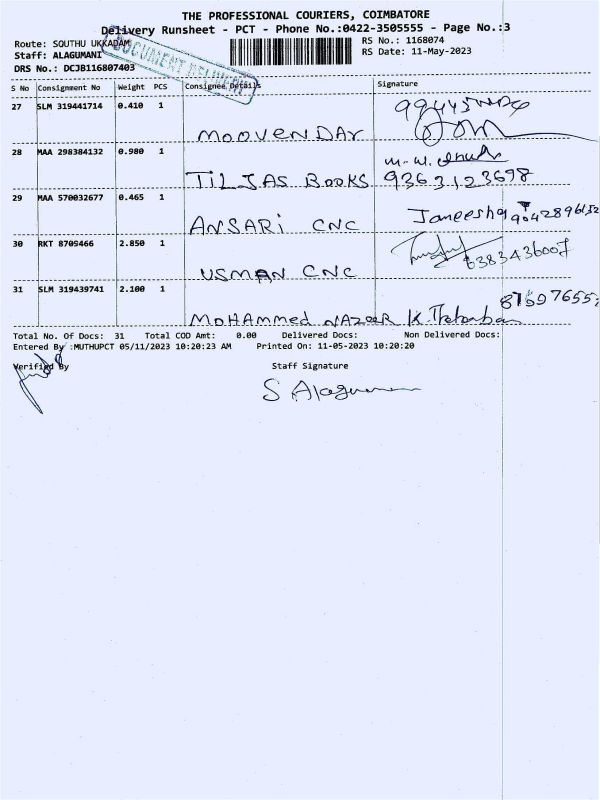 THE PROFESSIONAL COURIERS, COIMBATORE
Delivery Runsheet - PCT - Phone No.:0422-3505555 - Page No.:3
Route: SOUTHU UKKADAM
RS No.: 1168074
Staff: ALAGUMANI
RS Date: 11-May-2023
DRS No.: DCJB116807403
DOCUMENT DELIVERY
S No Consignment No Weight PCS Consignee Details Signature
27 SLM 319441714 0.410 1
MOOVENDAR
28 MAA 298384132 0.980 1
TILJAS BOOKS 9363123698
29 MAA 570032677 0.465 1
ANSARI CNC Janeesha 9042896132
30 RKT 8709466 2.850 1
USMAN CNC 6383436007
31 SLM 319439741 2.100 1
MOHAMMED NAZEER K.
Total No. Of Docs: 31 Total COD Amt: 0.00 Delivered Docs: Non Delivered Docs:
Entered By :MUTHUPCT 05/11/2023 10:20:23 AM Printed On: 11-05-2023 10:20:20
Verified By Staff Signature
S Alagumani